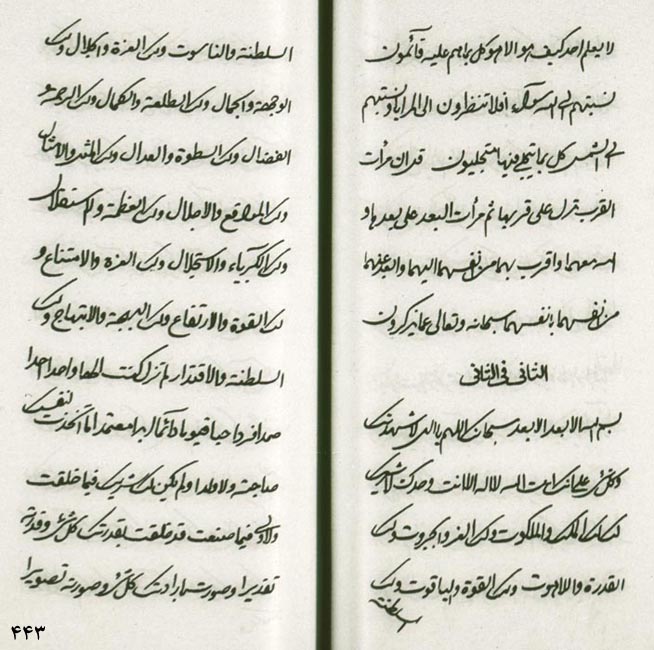 لا يعلم احد كيف هو الا هو كل براهم عليه قائمون
نسبتهم الى الله سوآء افلا تنظرون الى المرايا ونسبتهم
الى الشمس كل بما تجلى فيها متجليون قد ان مرآت
القرب نزل على قربها ثم مرآت البعد على بعدها و
انه معهما واقرب بهما من نفسهما اليهما وابعد عنهما
من نفسهما بانفسهما سبحانه وتعالى عما يذكرون
الثانى فى الثانى
بسم الله الابعد الابعد سبحانك اللهم يا الهى لاشهدنك
وكل شئ على انك انت الله لا اله الا انت وحدك لا شريك
لك لك الملك والملكوت ولك العز والجبروت ولك
القدرة واللاهوت ولك القوة والياقوت ولك
السلطنة
السلطنة والناسوت ولك العزة والجلال ولك
الوجهة والجمال ولك الطلعة والكمال ولك الرحمة و
الفضال ولك السطوة والعدال ولك المثل والامثال
ولك المواقع والاجلال ولك العظمة والاستقلال
ولك الكبرياء والاستجلال ولك العزة والامتناع و
لك القوة والارتفاع ولك البهجة والابتهاج ولك
السلطنة والاقتدار لم تزل كنت الها واحدا احدا
صمدا فردا حيا قيوما دائما ابدا معتمدا ما اتخذت لنفسك
صاحبة ولا ولدا ولم يكن لك شريك فيما خلقت
ولا ولى فيما صنعت قد خلقت بقدرتك كل شئ وقدرته
تقديرا وصورت بارادتك كل شئ وصورته تصويرا
۴۴۳